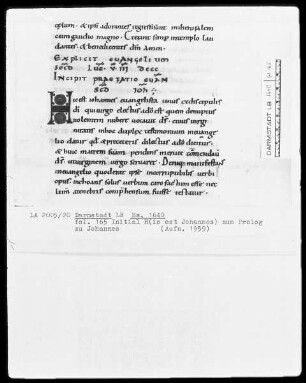 optum. & ipsi adorantes regressi sunt in hierusalem
cum gaudio magno. Et erant semp in templo lau
dantes & benedicentes dm Amen.
EXPLICIT EUANGELIUM
SCDO LUC
INCIPIT PRAEFATIO EUAM
SCD IOH
Hic est iohannes euangelista unus ex discipulis
di qui uirgo electus a do est quem de nuptiis
uolentem nubere uocauit ds. cui uirgi
nitatis duplex testimonium in euange
lio datur qd & prae ceteris dilectus a do dicitur
& huic matrem suam pendens in cruce commendauit
ut uirginem uirgo seruaret. Denique manifestans
in euangelio quod erat ipse incorruptibilis uerbi
opus inchoans solus uerbum caro factum esse nec
lumen a tenebris comprehensum fuisse testatur.
DARMSTADT LB
LA 2005/20 Darmstadt LB Hs. 1640
fol. 165 Initial H(ic est Johannes) zum Prolog
zu Johannes (Aufn. 1959)